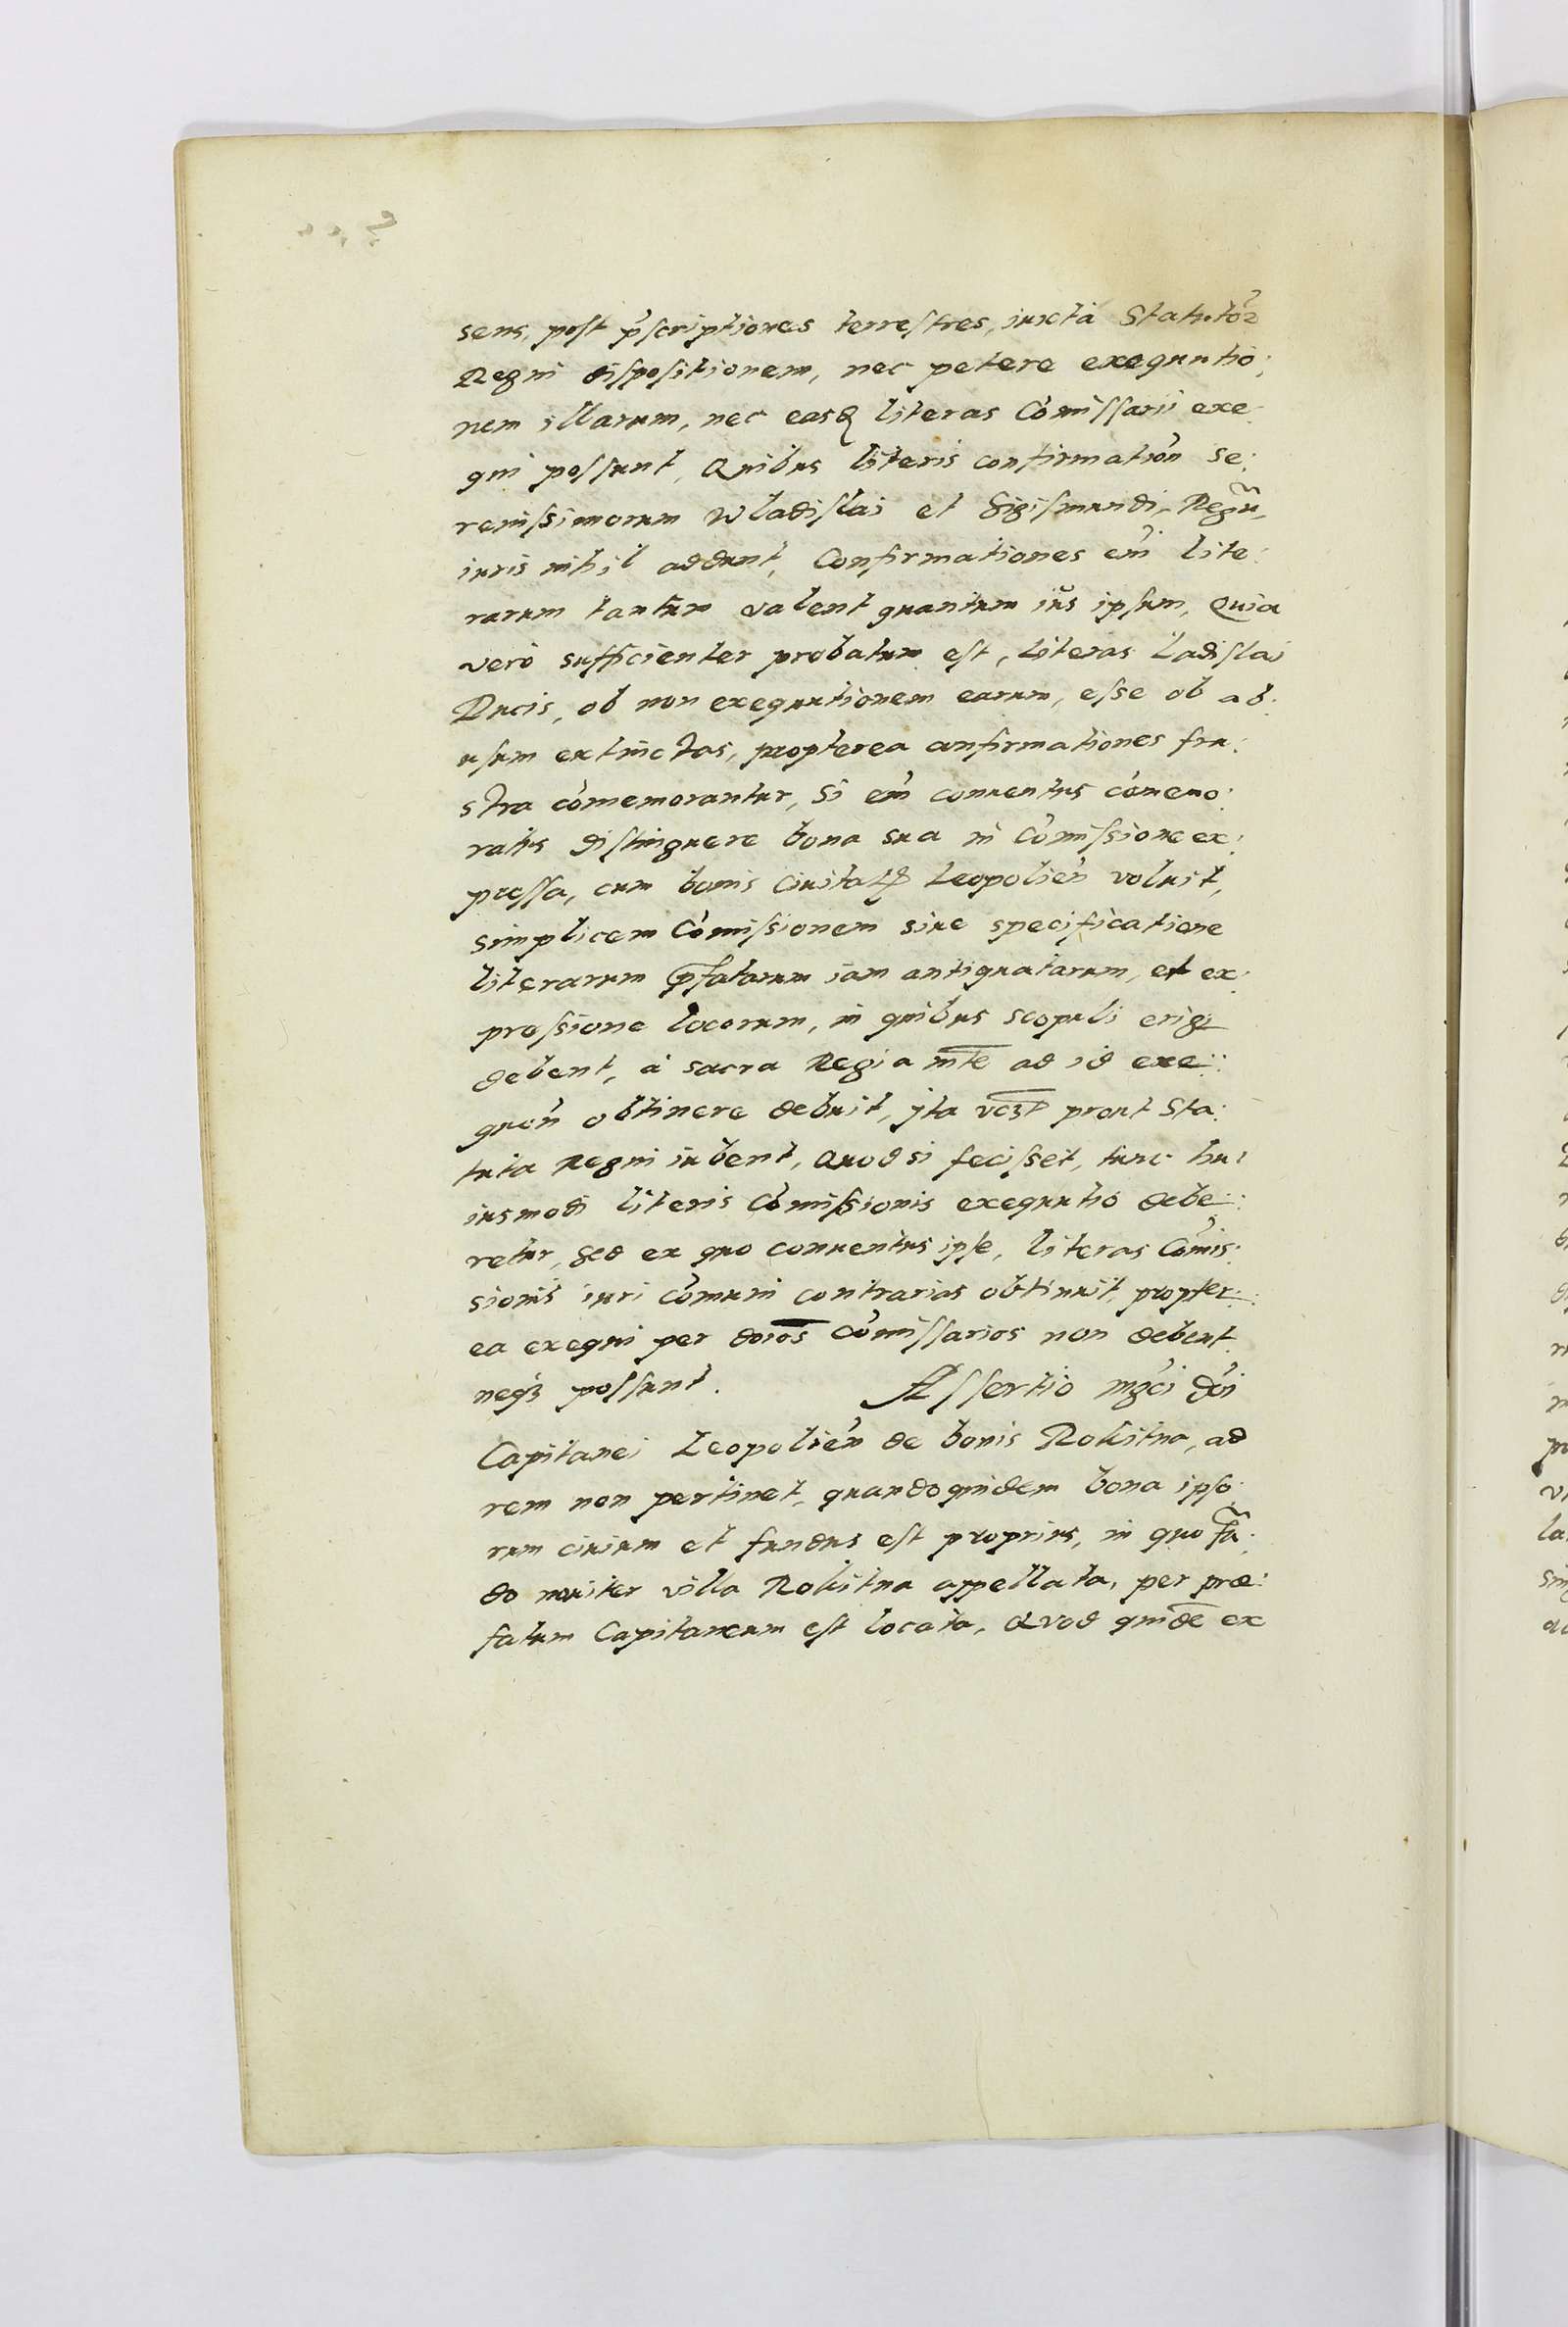 sens, post p̃scriptiones terrestres, iuxta Statutoꝝ
Regni dispositionem, nec petere exequutio:
nem illarum, nec easdē literas Com̃issarii exe:
qui possunt, Quibus literis confirmatioñ se:
renissimorum Wladislai et Sigismundi Regũ,
iuris nihil addunt, Confirmationes eñi lite:
rarum tantum valent quantum ius ipsum, Quia
vero sufficienter probatum est, Literas Ladislai
Ducis, ob non exequutionem earum, esse ob ab:
usum extinctas, propterea confirmationes fru:
stra com̃emorantur, Si eñi conuentus com̃emo:
ratus distinguere bona sua in Com̃issione ex:
pressa, cum bonis Ciuitatis Leopolieñ voluit,
simplicem Com̃issionem sine specificatione
literarum p̃fatarum iam antiquatarum, et ex:
pressione locorum, in quibus scopuli erigi
debent, à sacra Regia mte ad id exe:
queñ obtinere debuit, yta prout Sta:
tuta Regni iubent, Quod si fecisset, tunc hu:
iusmodi literis Com̃issionis exequutio debe:
retur, Sed ex quo conuentus ipse, literas Com̃is:
sionis iuri com̃uni contrarias obtinuit, propter:
ea exequi per dnos Com̃issarios non debent
neqꝫ possunt. Assertio mgci dñi
Capitanei Leopolieñ de bonis Rokitna, ad
rem non pertinet, quandoquidem bona ipso:
rum ciuium et fundus est proprius, in quo fũ:
do nouiter villa Rokitna appellata, per præ:
fatum Capitaneum est locata, Quod quidē ex